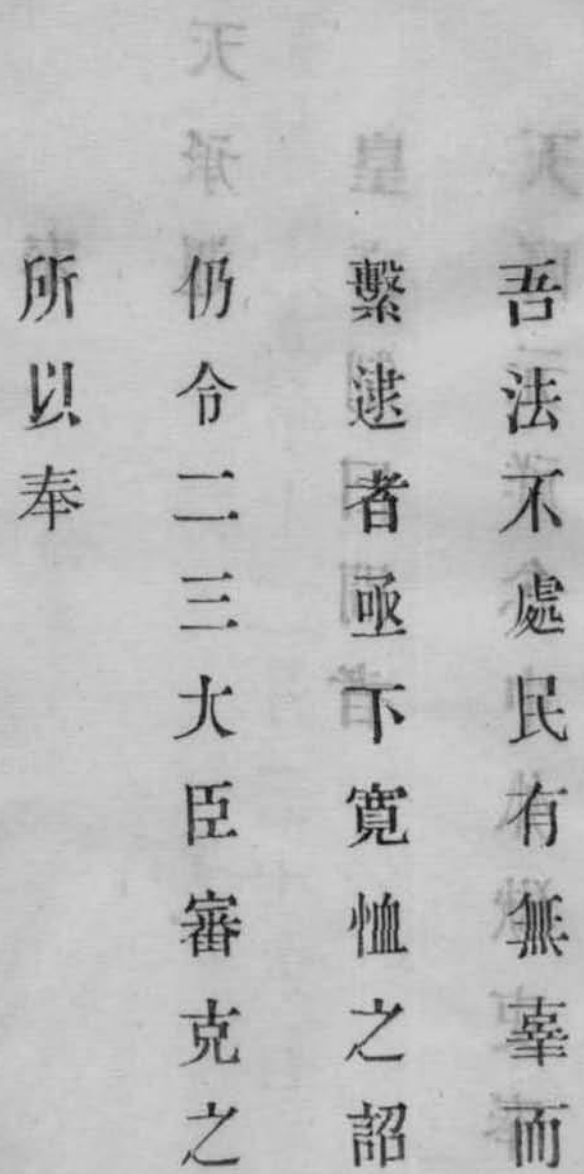 吾法不處民有無辜而
繫逮者亟下寬恤之詔
仍令二三大臣審克之
所以奉